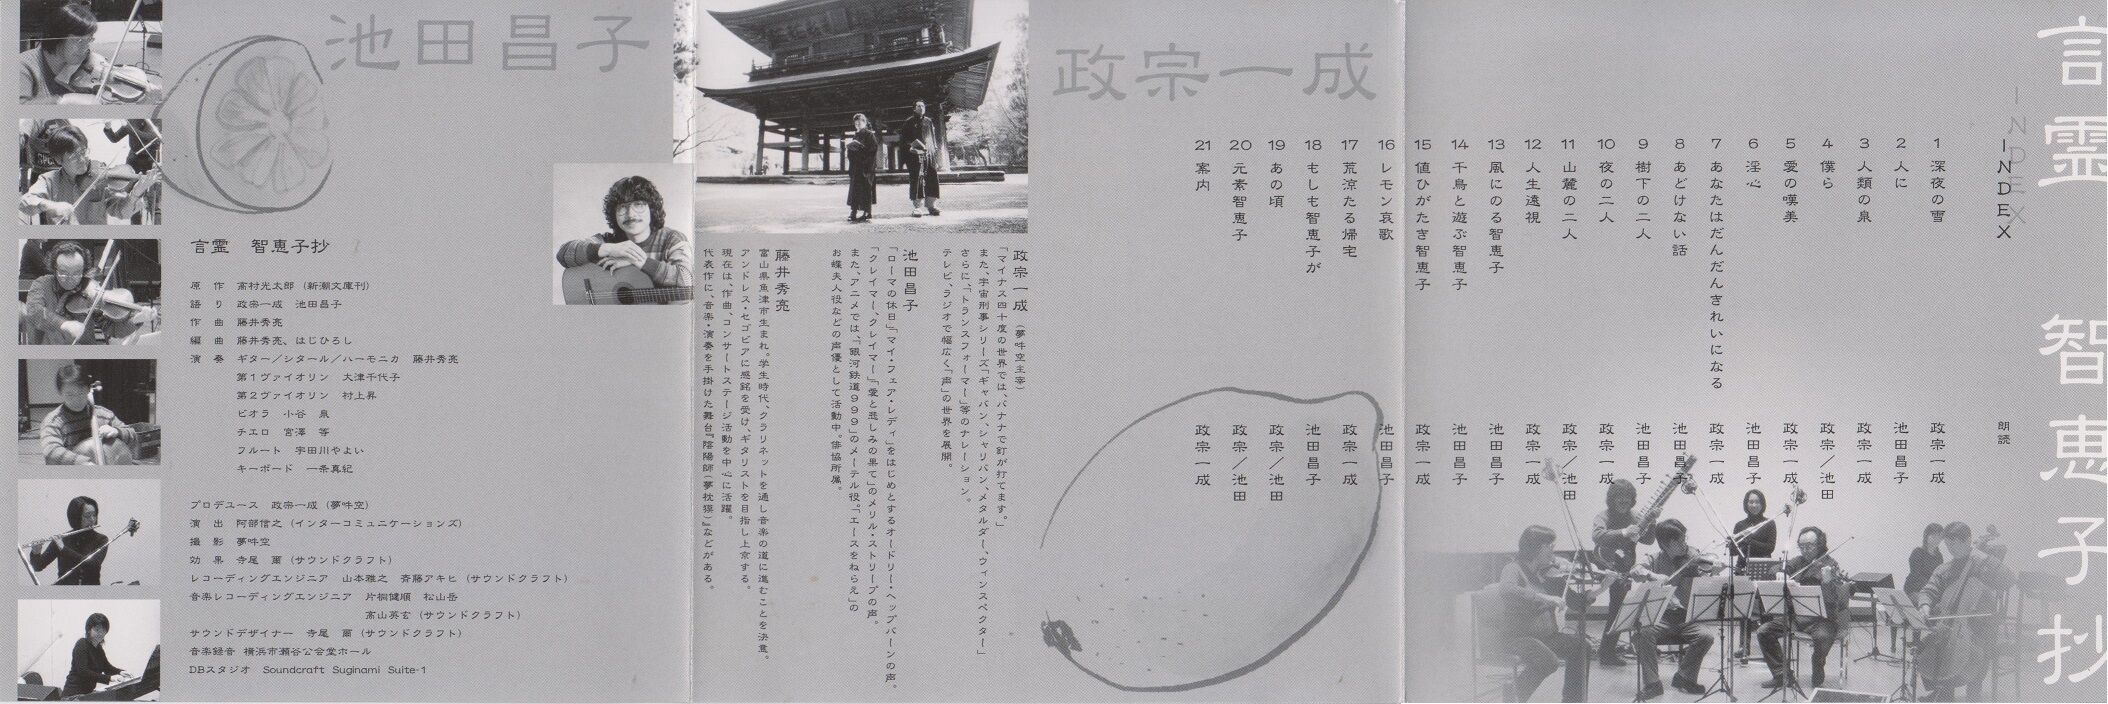 言霊 智恵子抄
INDEX
INDEX
朗読
1 深夜の雪 政宗一成
2 人に 池田昌子
3 人類の泉 政宗一成
4 僕ら 政宗／池田
5 愛の嘆美 政宗一成
6 淫心 池田昌子
7 あなたはだんだんきれいになる 政宗一成
8 あどけない話 池田昌子
9 樹下の二人 池田昌子
10 夜の二人 政宗一成
11 山麓の二人 政宗／池田
12 人生遠視 政宗一成
13 風にのる智恵子 池田昌子
14 千鳥と遊ぶ智恵子 池田昌子
15 値ひがたき智恵子 政宗一成
16 レモン哀歌 池田昌子
17 荒涼たる帰宅 政宗一成
18 もしも智恵子が 池田昌子
19 あの頃 政宗／池田
20 元素智恵子 政宗／池田
21 案内 政宗一成
政宗一成
政宗一成（夢吽空主宰）
「マイナス四十度の世界では、バナナで釘が打てます。」
また、宇宙刑事シリーズ「ギャバン、シャリバン、メタルダー、ウィンスペクター」
さらに、「トランスフォーマー」等のナレーション。
テレビ、ラジオで幅広く「声」の世界を展開。
池田昌子
「ローマの休日」「マイ・フェア・レディ」をはじめとするオードリー・ヘップバーンの声。
「クレイマー、クレイマー」「愛と悲しみの果て」のメリル・ストリープの声。
また、アニメでは、「銀河鉄道999」のメーテル役。「エースをねらえ」の
お蝶夫人役などの声優として活動中。俳協所属。
藤井秀亮
富山県魚津市生まれ。学生時代、クラリネットを通し音楽の道に進むことを決意。
アンドレス・セゴビアに感銘を受け、ギタリストを目指し上京する。
現在は、作曲、コンサートステージ活動を中心に活躍。
代表作に、音楽・演奏を手掛けた舞台『陰陽師（夢枕獏）』などがある。
池田昌子
言霊 智恵子抄
原 作 高村光太郎（新潮文庫刊）
語 り 政宗一成 池田昌子
作 曲 藤井秀亮
編 曲 藤井秀亮、はじひろし
演 奏 ギター／シタール／ハーモニカ 藤井秀亮
第1ヴァイオリン 大津千代子
第2ヴァイオリン 村上昇
ビオラ 小谷 泉
チエロ 宮澤 等
フルート 宇田川やよい
キーボード 一条真紀
プロデュース 政宗一成（夢吽空）
演 出 阿部信之（インターコミュニケーションズ）
撮 影 夢吽空
効 果 寺尾 爾（サウンドクラフト）
レコーディングエンジニア 山本雅之 斉藤アキヒ（サウンドクラフト）
音楽レコーディングエンジニア 片桐健順 松山岳
高山英玄（サウンドクラフト）
サウンドデザイナー 寺尾 爾（サウンドクラフト）
音楽録音 横浜市瀬谷公会堂ホール
DBスタジオ Soundcraft Suginami Suite-1